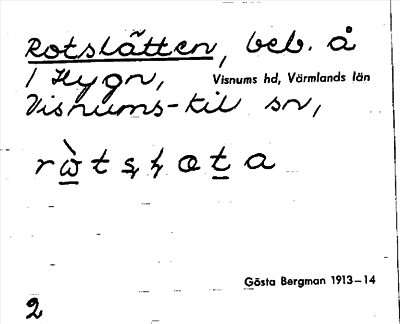 Rotslätten, beb. å
1 Hygn, Visnums hd, Värmlands län
Visnums-Kil sn,
Gösta Bergman 1913-14
2